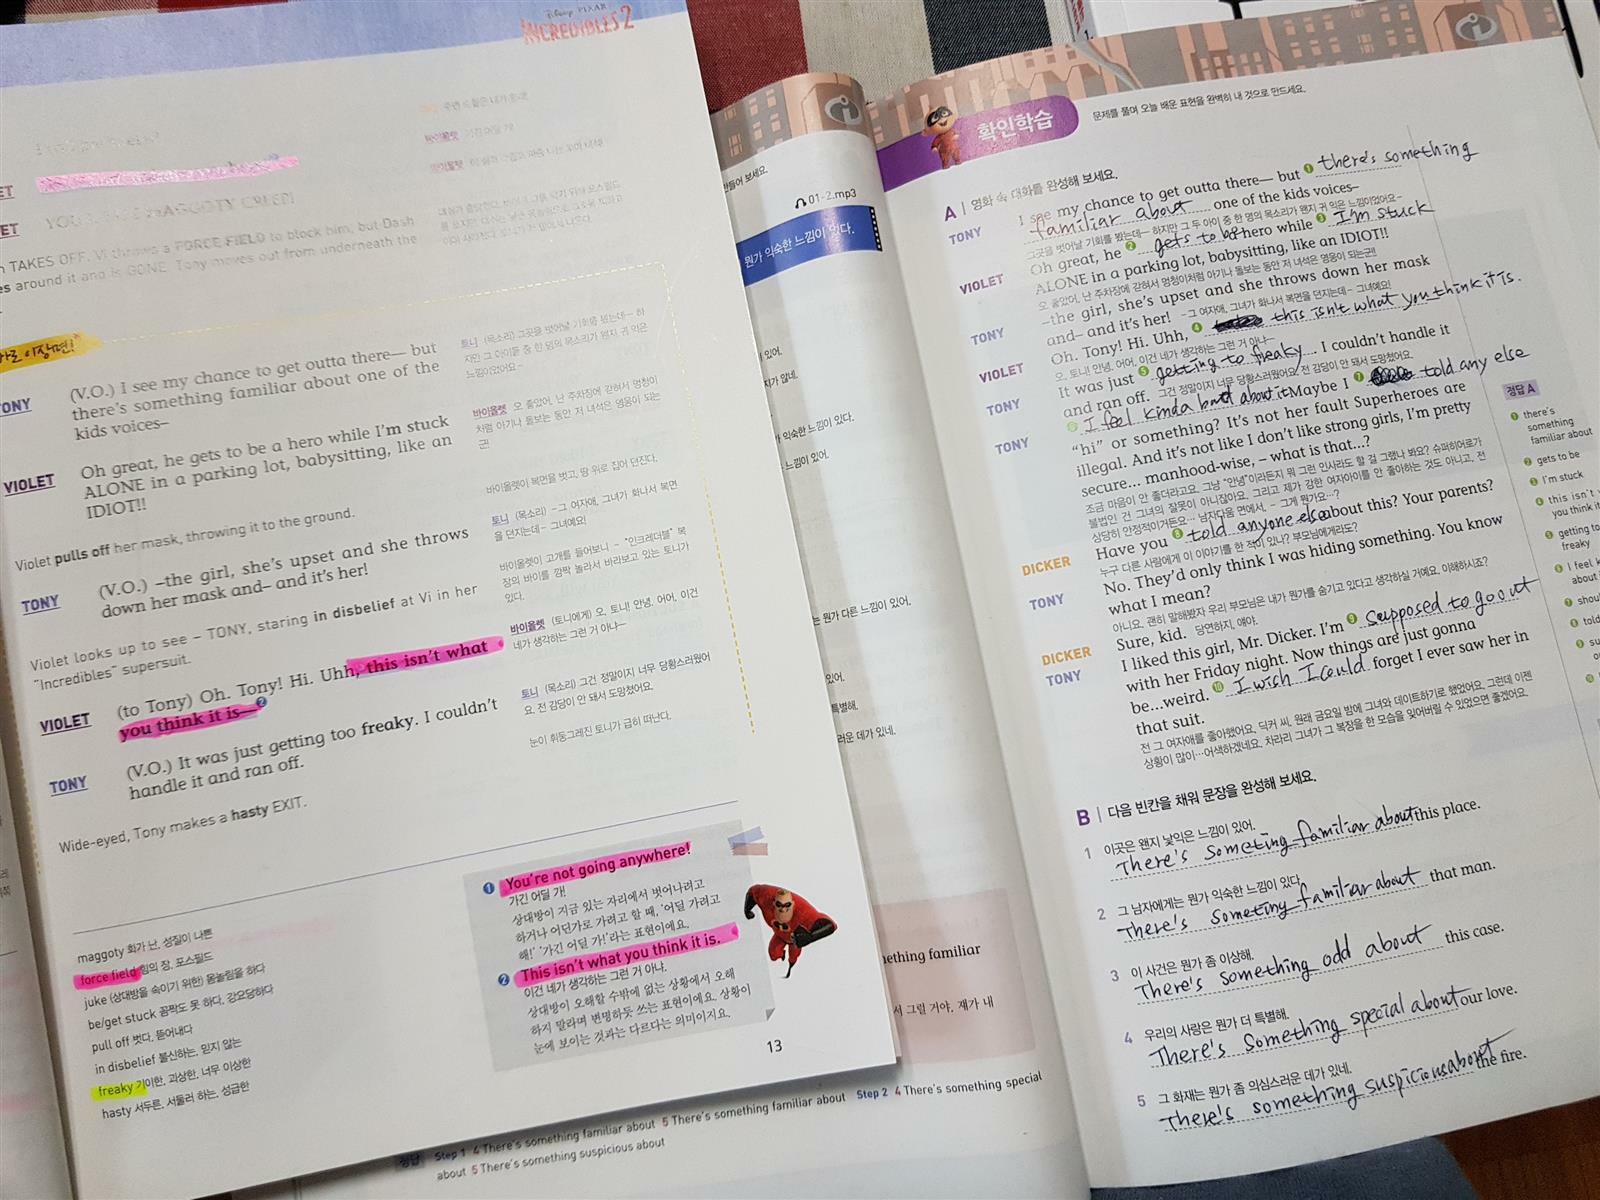 Disney PIXAR
INCREDIBLES 2
YOU
TAKES OFF. Vi throws a FORCE FIELD to block him, but Dash
around it and is GONE. Tony moves out from underneath the
이 장면!
TONY
(V.O.) I see my chance to get outta there— but
there's something familiar about one of the
kids voices–
VIOLET
Oh great, he gets to be a hero while I'm stuck
ALONE in a parking lot, babysitting, like an
IDIOT!!
Violet pulls off her mask, throwing it to the ground.
TONY
(V.O.) –the girl, she's upset and she throws
down her mask and– and it's her!
Violet looks up to see – TONY, staring in disbelief at Vi in her
"Incredibles" supersuit.
VIOLET
(to Tony) Oh. Tony! Hi. Uhh, this isn't what
you think it is—❷
TONY
(V.O.) It was just getting too freaky. I couldn't
handle it and ran off.
Wide-eyed, Tony makes a hasty EXIT.
토니 (목소리) 그곳을 벗어날 기회를 봤는데— 하
지만 그 아이들 중 한 명의 목소리가 왠지 귀 익은
느낌이었어요 –
바이올렛 오 좋았어, 난 주차장에 갇혀서 멍청이
처럼 아기나 돌보는 동안 저 녀석은 영웅이 되는
군!
바이올렛이 복면을 벗고, 땅 위로 집어 던진다.
토니 (목소리) –그 여자애, 그녀가 화나서 복면
을 던지는데– 그녀예요!
바이올렛이 고개를 들어보니 – "인크레더블" 복
장의 바이를 깜짝 놀라서 바라보고 있는 토니가
있다.
바이올렛 (토니에게) 오, 토니! 안녕. 어어, 이건
네가 생각하는 그런 거 아냐—
토니 (목소리) 그건 정말이지 너무 당황스러웠어
요. 전 감당이 안 돼서 도망쳤어요.
눈이 휘둥그레진 토니가 급히 떠난다.
maggoty 화가 난, 성질이 나쁜
force field 힘의 장, 포스필드
juke (상대방을 속이기 위한) 몸놀림을 하다
be/get stuck 꼼짝도 못 하다, 강요당하다
pull off 벗다, 뜯어내다
in disbelief 불신하는, 믿지 않는
freaky 기이한, 괴상한, 너무 이상한
hasty 서두른, 서둘러 하는, 성급한
❶ You're not going anywhere!
가긴 어딜 가!
상대방이 지금 있는 자리에서 벗어나려고
하거나 어딘가로 가려고 할 때, '어딜 가려고
해!' '가긴 어딜 가!'라는 표현이에요.
❷ This isn't what you think it is.
이건 네가 생각하는 그런 거 아냐.
상대방이 오해할 수밖에 없는 상황에서 오해
하지 말라며 변명하듯 쓰는 표현이에요. 상황이
눈에 보이는 것과는 다르다는 의미이지요.
13
들어 보세요.
01-2.mp3
뭔가 익숙한 느낌이 있다.
있어.
지가 않네.
익숙한 느낌이 있다.
느낌이 있어.
는 뭔가 다른 느낌이 있어.
있어.
특별해.
러운 데가 있네.
something familiar
서 그럴 거야. 제가 내
정답 Step 1 4 There's something familiar about 5 There's something familiar about Step 2 4 There's something special
about 5 There's something suspicious about
확인학습
문제를 풀며 오늘 배운 표현을 완벽히 내 것으로 만드세요.
A | 영화 속 대화를 완성해 보세요.
TONY
I see my chance to get outta there— but ❶ there's something
familiar about one of the kids voices–
그곳을 벗어날 기회를 봤는데— 하지만 그 두 아이 중 한 명의 목소리가 왠지 귀 익은 느낌이었어요–
VIOLET
Oh great, he ❷ gets to be hero while ❸ I'm stuck
ALONE in a parking lot, babysitting, like an IDIOT!!
오 좋았어, 난 주차장에 갇혀서 멍청이처럼 아기나 돌보는 동안 저 녀석은 영웅이 되는군!
TONY
–the girl, she's upset and she throws down her mask
and– and it's her! –그 여자애, 그녀가 화나서 복면을 던지는데– 그녀예요!
VIOLET
Oh. Tony! Hi. Uhh, ❹ this isn't what you think it is.
오, 토니! 안녕. 어어, 이건 네가 생각하는 그런 거 아냐—
TONY
It was just ❺ getting to freaky. I couldn't handle it
and ran off. 그건 정말이지 너무 당황스러웠어요. 전 감당이 안 돼서 도망쳤어요.
TONY
❻ I feel kinda bad about it Maybe I ❼ told any else
"hi" or something? It's not her fault Superheroes are
illegal. And it's not like I don't like strong girls, I'm pretty
secure... manhood-wise, – what is that...?
조금 마음이 안 좋더라고요. 그냥 "안녕"이라든지 뭐 그런 인사라도 할 걸 그랬나 봐요? 슈퍼히어로가
불법인 건 그녀의 잘못이 아니잖아요. 그리고 제가 강한 여자아이를 안 좋아하는 것도 아니고, 전
상당히 안정적이거든요... 남자다움 면에서, – 그게 뭔가요…?
DICKER
Have you ❽ told anyone else about this? Your parents?
누구 다른 사람에게 이 이야기를 한 적이 있니? 부모님에게라도?
TONY
No. They'd only think I was hiding something. You know
what I mean?
아니요. 괜히 말해봤자 우리 부모님은 내가 뭔가를 숨기고 있다고 생각하실 거예요. 이해하시죠?
DICKER
Sure, kid. 당연하지, 얘야.
TONY
I liked this girl, Mr. Dicker. I'm ❾ supposed to go out
with her Friday night. Now things are just gonna
be...weird. ❿ I wish I could forget I ever saw her in
that suit.
전 그 여자애를 좋아했어요, 딕커 씨. 원래 금요일 밤에 그녀와 데이트하기로 했었어요. 그런데 이젠
상황이 많이…어색하겠네요. 차라리 그녀가 그 복장을 한 모습을 잊어버릴 수 있었으면 좋겠어요.
B | 다음 빈칸을 채워 문장을 완성해 보세요.
1 이곳은 왠지 낯익은 느낌이 있어.
There's Someting familiar about this place.
2 그 남자에게는 뭔가 익숙한 느낌이 있다.
There's Someting familiar about that man.
3 이 사건은 뭔가 좀 이상해.
There's something odd about this case.
4 우리의 사랑은 뭔가 더 특별해.
There's Something special about our love.
5 그 화재는 뭔가 좀 의심스러운 데가 있네.
There's something suspicious about the fire.
정답 A
❶ there's
something
familiar about
❷ gets to be
❸ I'm stuck
❹ this isn't
you think it
❺ getting to
freaky
❻ I feel k
about
❼ shou
❽ told
❾ su